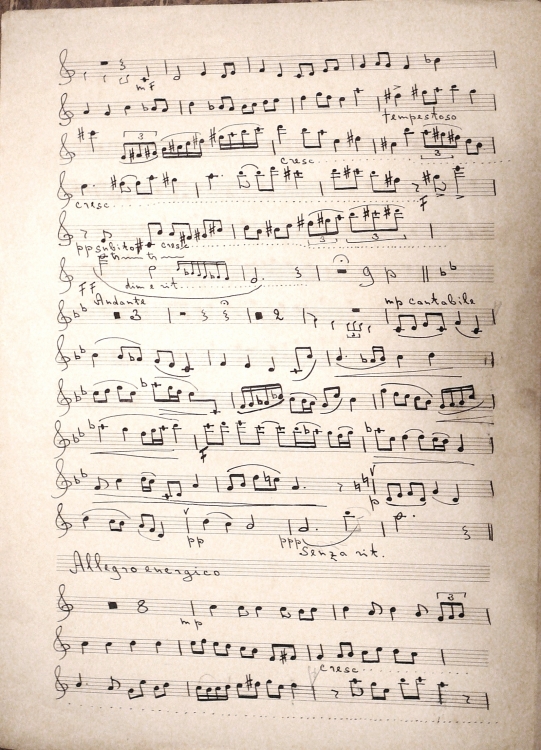 mF
tempestoso
3
cresc
3
cresc
F
pp subito cresc
3
3
tr tr
FF dim e rit
Andante
mp cantabile
3
2
F
p
pp
ppp
Senza rit.
Allegro energico
8
3
mp
cresc